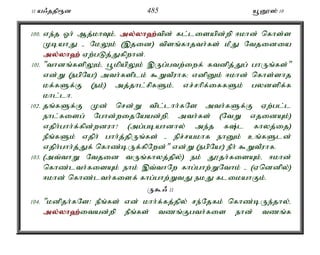 11 யஃததிரூன 485 யூனுஸ் 10
100. எந்த ஓர் ஆத்மாவும், அல்லாஹ்வின் கட்டளையின்றி ஈமான் கொள்ள
முடியாது – மேலும் (இதனை) விளங்காதவர்கள் மீது வேதனையை
அல்லாஹ் ஏற்படுத்துகிறான்.
101. "வானங்களிலும், பூமியிலும் இருப்பவற்றைக் கவனித்துப் பாருங்கள்"
என்று (நபியே!) அவர்களிடம் கூறுவீராக; எனினும் ஈமான் கொள்ளாத
மக்களுக்கு (நம்) அத்தாட்சிகளும், எச்சரிக்கைகளும் பலனளிக்க
மாட்டா.
102. தங்களுக்கு முன் சென்று விட்டார்களே அவர்களுக்கு ஏற்பட்ட
நாட்களைப் போன்றதையேயன்றி, அவர்கள் (வேறு எதனையும்)
எதிர்பார்க்கின்றனரா? (அப்படியானால் அந்த கஷ்ட காலத்தை)
நீங்களும் எதிர் பார்த்திருங்கள் – நிச்சயமாக நானும் உங்களுடன்
எதிர்பார்த்துக் கொண்டிருக்கிறேன்" என்று (நபியே!) நீர் கூறுவீராக.
103. (அவ்வாறு வேதனை வருங்காலத்தில்) நம் தூதர்களையும், ஈமான்
கொண்டவர்களையும் நாம் இவ்வாறே காப்பாற்றுவோம் – (ஏனெனில்)
ஈமான் கொண்டவர்களைக் காப்பாற்றுவது நமது கடமையாகும்.
ருகூஃ 11
104. "மனிதர்களே! நீங்கள் என் மார்க்கத்தில் சந்தேகம் கொண்டிருந்தால்,
அல்லாஹ்வையன்றி நீங்கள் வணங்குபவர்களை நான் வணங்க